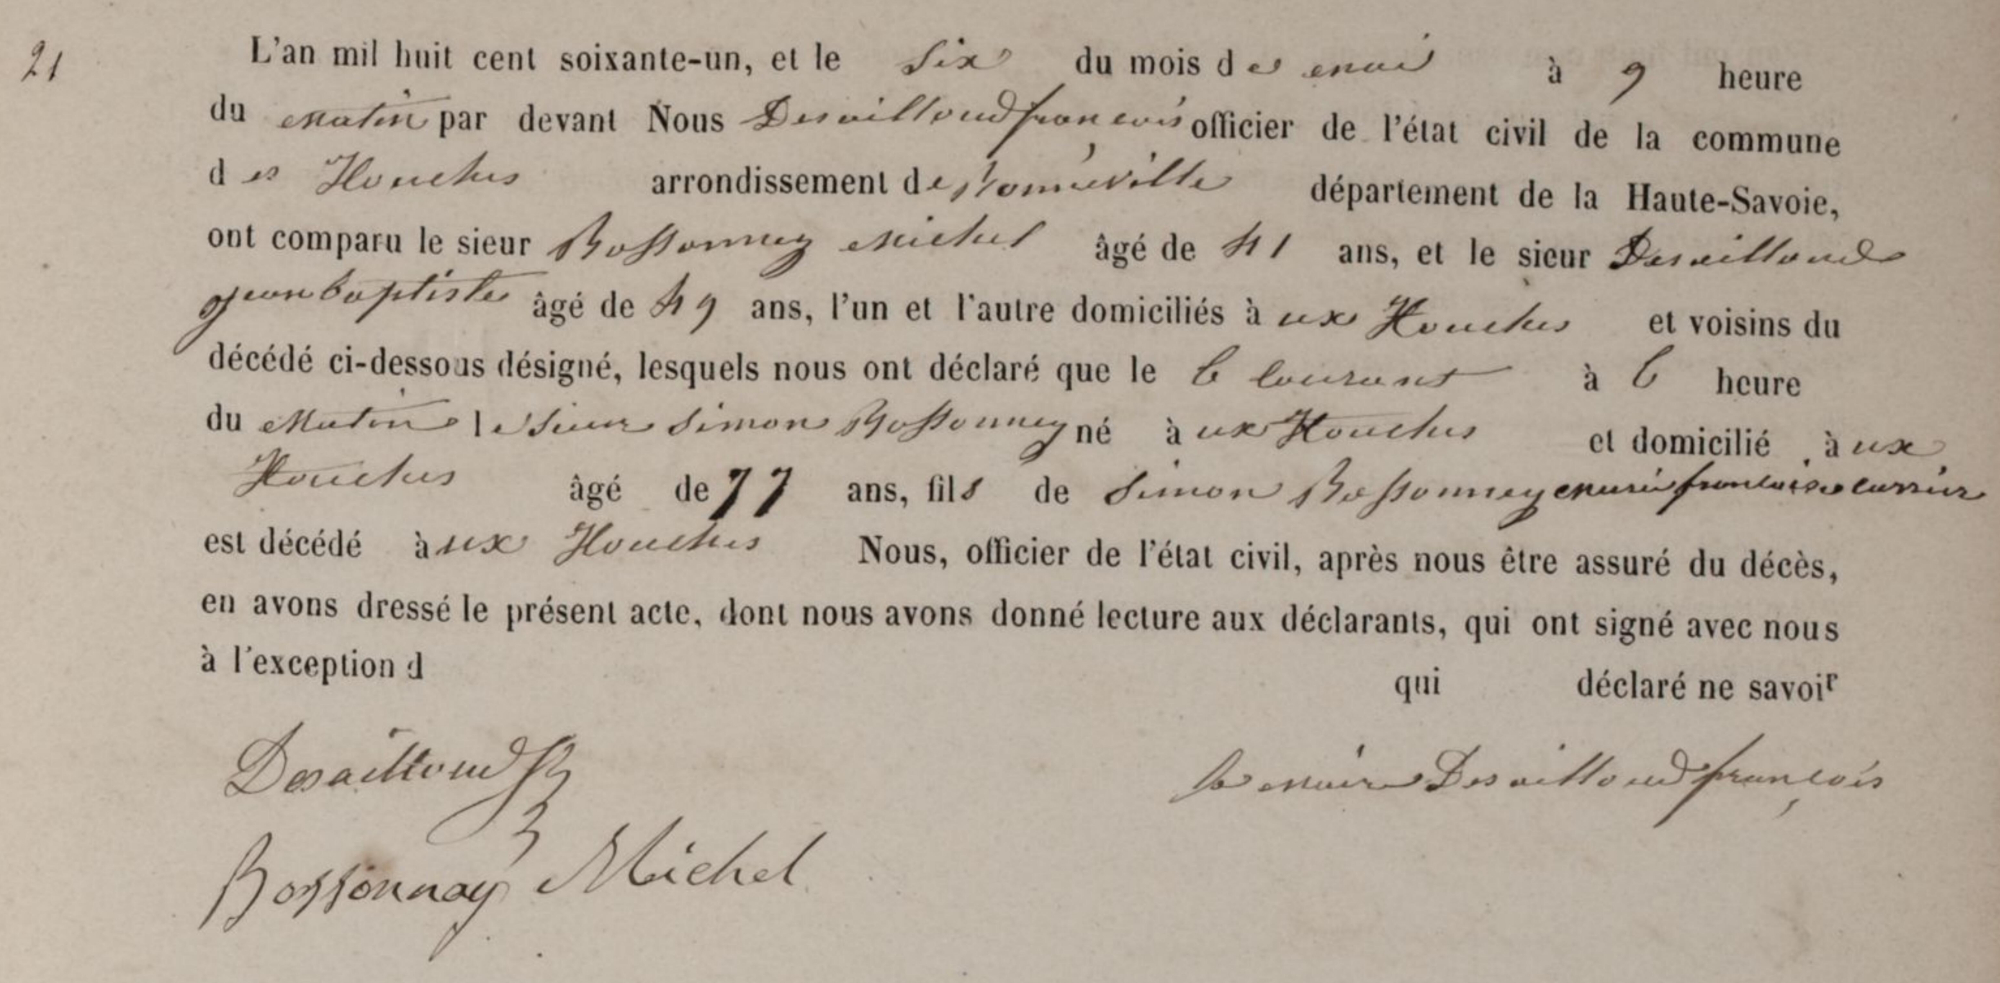 21
L'an mil huit cent soixante-un, et le six du mois de mai à 9 heure
du matin par devant Nous Desailloud françois officier de l'état civil de la commune
des Houches arrondissement de Bonneville département de la Haute-Savoie,
ont comparu le sieur Bossonney Michel âgé de 41 ans, et le sieur Desailloud
jean baptiste âgé de 49 ans, l'un et l'autre domiciliés à ux Houches et voisins du
décédé ci-dessous désigné, lesquels nous ont déclaré que le 6 courant à 6 heure
du matin le sieur simon Bossonney né à ux Houches et domicilié à ux
Houches âgé de 77 ans, fils de simon Bossonney mari françoise
est décédé à ux Houches Nous, officier de l'état civil, après nous être assuré du décès,
en avons dressé le présent acte, dont nous avons donné lecture aux déclarants, qui ont signé avec nous
à l'exception d qui déclaré ne savoir
Desailloud le maire Desailloud françois
Bossonnay Michel